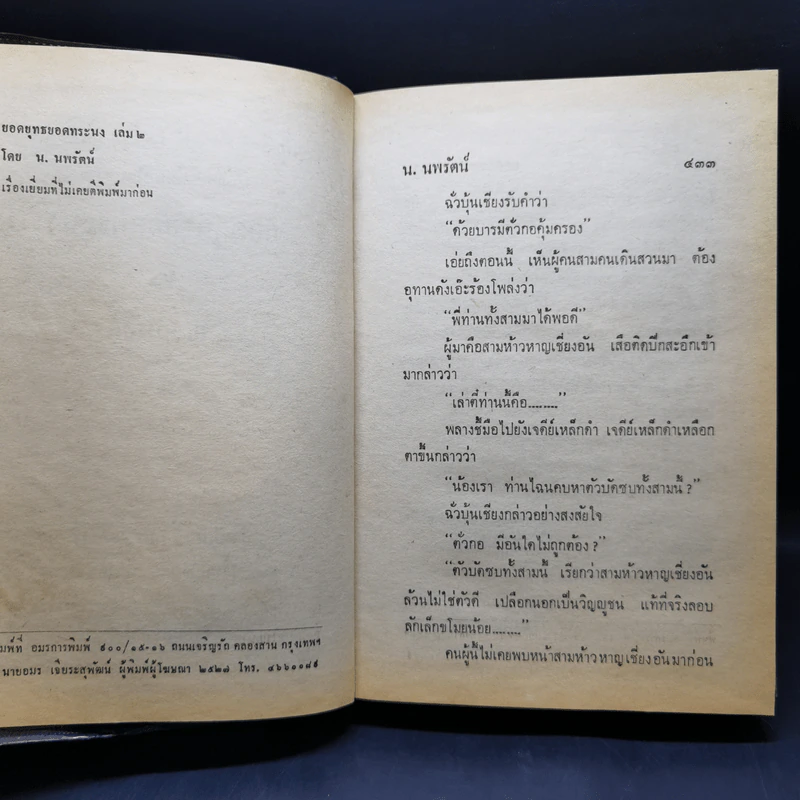 ยอดยุทธยอดทระนง เล่ม ๒
โดย น. นพรัตน์
เรื่องเยี่ยมที่ไม่เคยตีพิมพ์มาก่อน
พิมพ์ที่ อมรการพิมพ์ ๙๐๐/๑๕-๑๖ ถนนเจริญรัถ คลองสาน กรุงเทพฯ
นายอมร เจียระสุพัฒน์ ผู้พิมพ์ผู้โฆษณา ๒๕๒๘ โทร. ๔๖๖๐๑๘๙
น. นพรัตน์ ๔๓๓
ฉั่วบุ้นเชียงรับคำว่า
“ด้วยบารมีตั่วกอคุ้มครอง”
เอ่ยถึงตอนนี้ เห็นผู้คนสามคนเดินสวนมา ต้อง
อุทานดังเอ๊ะร้องโพล่งว่า
“พี่ท่านทั้งสามมาได้พอดี”
ผู้มาคือสามห้าวหาญเชี่ยงอัน เสือติดปีกสะอึกเข้า
มากล่าวว่า
“เล่าตี๋ท่านนี้คือ........”
พลางชี้มือไปยังเจดีย์เหล็กดำ เจดีย์เหล็กดำเหลือก
ตาขึ้นกล่าวว่า
“น้องเรา ท่านไฉนคบหาตัวบัดซบทั้งสามนี้?”
ฉั่วบุ้นเชียงกล่าวอย่างสงสัยใจ
“ตั่วกอ มีอันใดไม่ถูกต้อง?”
“ตัวบัดซบทั้งสามนี้ เรียกว่าสามห้าวหาญเชี่ยงอัน
ล้วนไม่ใช่ตัวดี เปลือกนอกเป็นวิญญูชน แท้ที่จริงลอบ
ลักเล็กขโมยน้อย........”
คนผู้นี้ไม่เคยพบหน้าสามห้าวหาญเชี่ยงอันมาก่อน